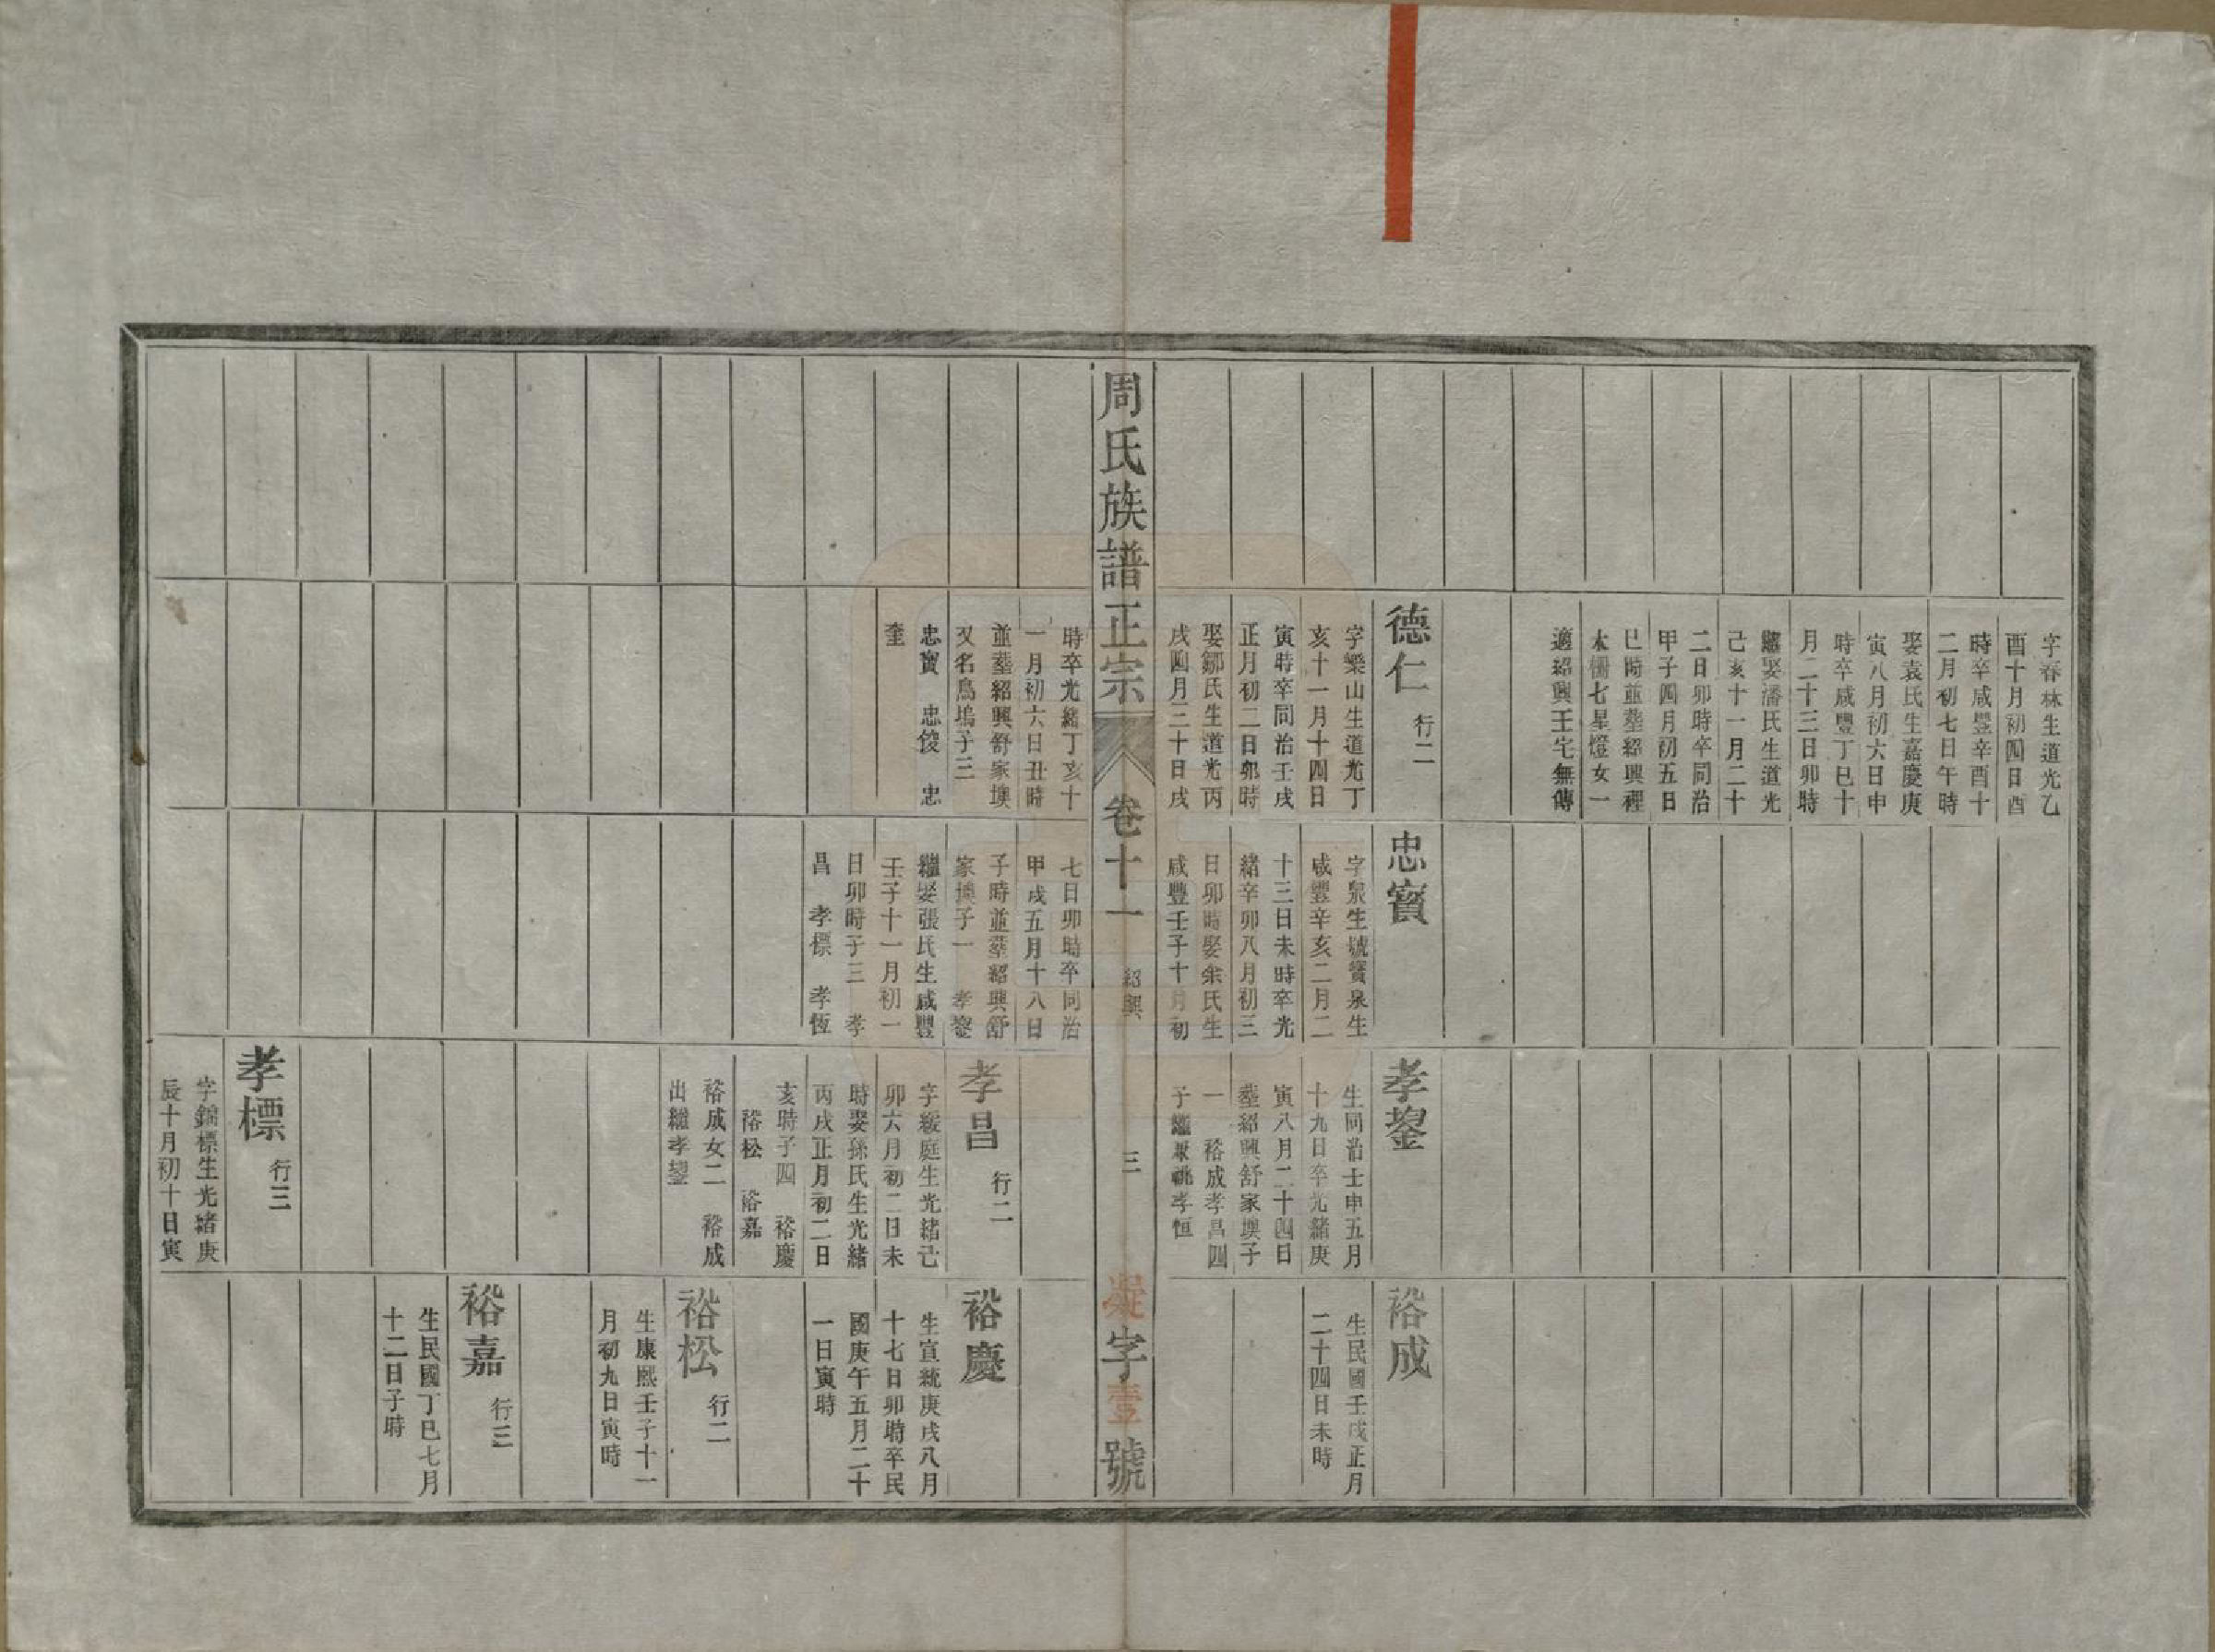 字春林生道光乙
酉十月初四日酉
時卒咸豐辛酉十
二月初七日午時
娶袁氏生嘉慶庚
寅八月初六日申
時卒咸豐丁巳十
月二十三日卯時
繼娶潘氏生道光
己亥十一月二十
二日卯時卒同治
甲子四月初五日
巳時並葬紹興裡
木柵七星燈女一
適紹興王宅無傳
德仁 行二
字樂山生道光丁
亥十一月十四日
寅時卒同治壬戌
正月初二日卯時
娶鄒氏生道光丙
戌四月二十日戌
忠寶
字泉生號寶泉生
咸豐辛亥二月二
十三日未時卒光
緒辛卯八月初三
日卯時娶余氏生
咸豐壬子十月初
孝鋆
生同治壬申五月
十九日卒光緒庚
寅八月二十四日
葬紹興舒家墺子
一 裕成孝昌四
子繼承祧孝恒
裕成
生民國壬戌正月
二十四日未時
周氏族譜正宗
卷十一 紹興 三
凝字壹號
時卒光緒丁亥十
一月初六日丑時
並葬紹興舒家墺
又名鳥塢子三
忠寶 忠俊 忠
奎
七日卯時卒同治
甲戌五月十八日
子時並葬紹興舒
家墺子一 孝鋆
繼娶張氏生咸豐
壬子十一月初一
日卯時子三 孝
昌 孝標 孝恆
孝昌 行二
字綬庭生光緒己
卯六月初二日未
時娶孫氏生光緒
丙戌正月初二日
亥時子四 裕慶
裕松 裕嘉
裕成女二 裕成
出繼孝鋆
裕慶
生宣統庚戌八月
十七日卯時卒民
國庚午五月二十
一日寅時
裕松 行二
生康熙壬子十一
月初九日寅時
裕嘉 行三
生民國丁巳七月
十二日子時
孝標 行三
字錦標生光緒庚
辰十月初十日寅